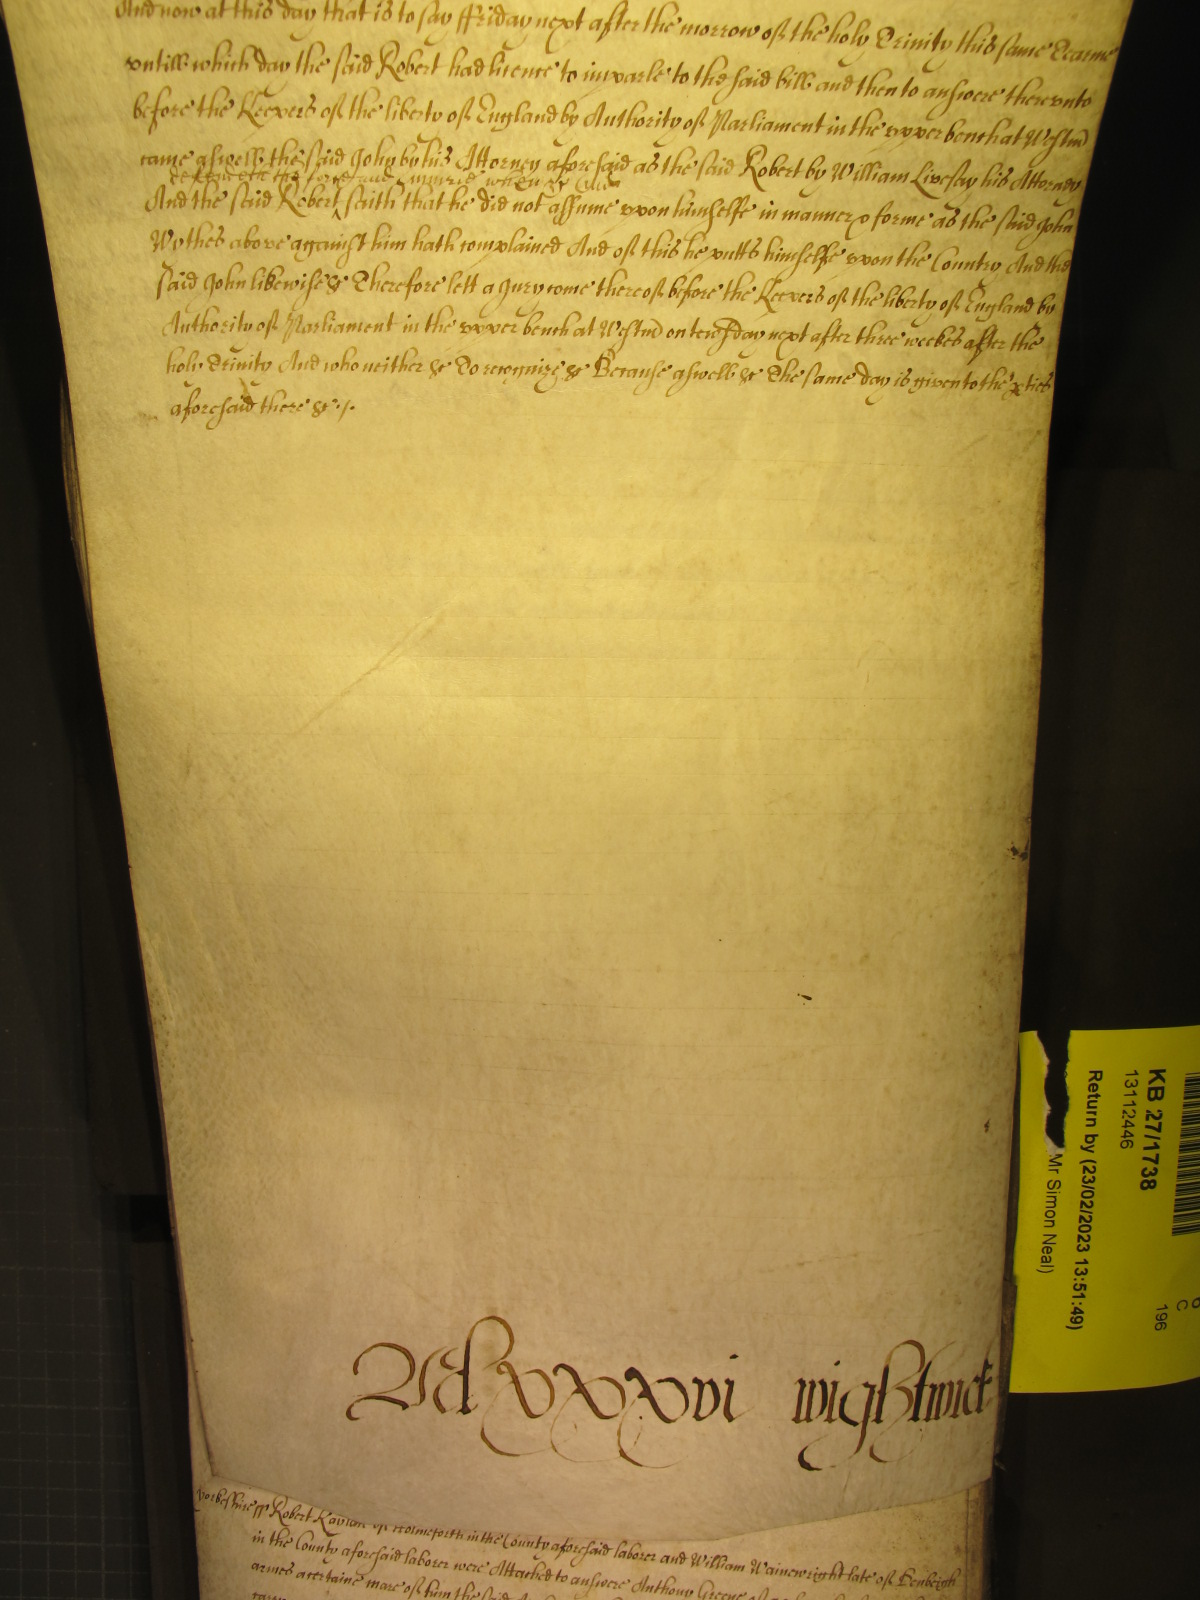 And now at this day that is to say ffriday next after the morrow of the holy Trinity this same Tearme
vntill which day the said Robert had licence to imparle to the said bill and then to answere therevnto
before the Keepers of the liberty of England by Authority of Parliament in the vpper bench at Westm
came aswell the said John by his Attorney aforesaid as the said Robert by William Livesay his Attorney
defendeth the force and iniurie when &c
And the said Robert saith that he did not assume vpon himselfe in manner & forme as the said John
Wythes above against him hath complained And of this he putts himselfe vpon the Country And the
said John likewise &c Therefore lett a Jury come thereof before the Keepers of the liberty of England by
Authority of Parliament in the vpper bench at Westm on day next after three weekes after the
holy Trinity And who neither &c To recognize &c Because aswell &c The same day is given to the pties
aforesaid there &c
xxxvi wightwick
yorkeshire ss Robert of Holmeforth in the County aforesaid laborer and William Wainewright late of
in the County aforesaid laborer were Attached to answere Anthony Greene
armes a certaine mare of him the said
KB 27/1738
13112446
Return by (23/02/2023 13:51:49)
Mr Simon Neal)
196
C
6